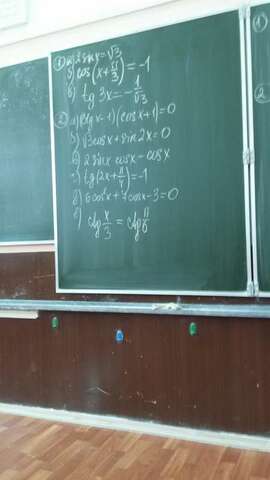 ① а) 2 sin x = √3
б) cos(x + π/3) = -1
в) tg 3x = - 1/√3
② а) (ctg x - 1)(cos x + 1) = 0
б) √3 cos x + sin 2x = 0
в) 2 sin x cos x - cos x
г) tg(2x + π/4) = -1
д) 6 cos² x + 7 cos x - 3 = 0
е) ctg x/3 = ctg π/6
①
②